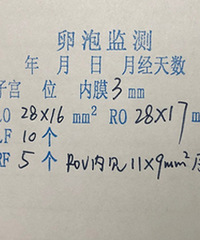 卵泡监测
年 月 日 月经天数
子宫 位 内膜 3 mm
LO 28×16 mm² RO 28×17 m
LF 10 个
RF 5 个 ROV内见11×9mm²